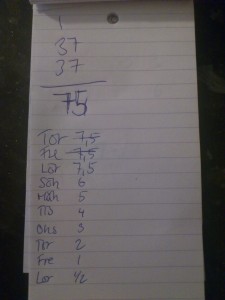 1
37
37
75
Tor 7,5
Fre 7,5
Lör 7,5
Sön 6
Mån 5
Tis 4
Ons 3
Tor 2
Fre 1
Lör 1/2